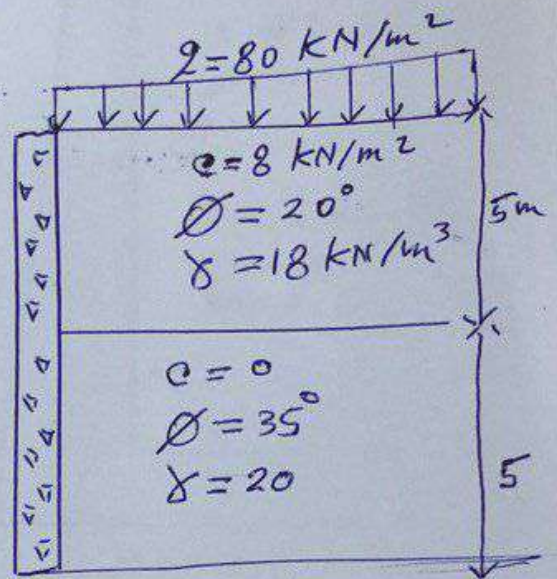 2=80 KN/m²
c=8 KN/m²
Ø=20°
γ=18 KN/m³
5m
c=0
Ø=35°
γ=20
5